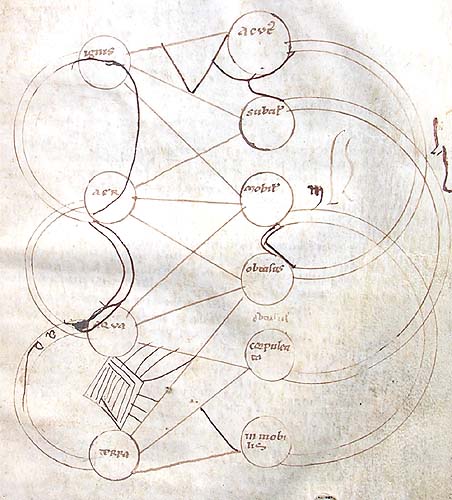 ignis
acut
subtil
aer
mobil
obtusus
aqua
corpulen
ta
terra
inmobi
lis